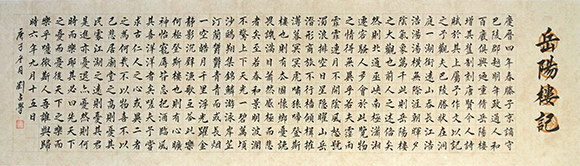 岳陽樓記
慶曆四年春滕子京謫守
巴陵郡越明年政通人和
百廢俱興迺重修岳陽樓
增其舊制刻唐賢今人詩
賦於其上屬予作文以記
之予觀夫巴陵勝狀在洞
庭一湖銜遠山吞長江浩
浩湯湯橫無際涯朝暉夕
陰氣象萬千此則岳陽樓
之大觀也前人之述備矣
然則北通巫峽南極瀟湘
遷客騷人多會於此覽物
之情得無異乎若夫霪雨
霏霏連月不開陰風怒號
濁浪排空日星隱曜山岳
潛形商旅不行檣傾楫摧
薄暮冥冥虎嘯猿啼登斯
樓也則有去國懷鄉憂讒
畏譏滿目蕭然感極而悲
者矣至若春和景明波瀾
不驚上下天光一碧萬頃
沙鷗翔集錦鱗游泳岸芷
汀蘭鬱鬱青青而或長煙
一空皓月千里浮光躍金
靜影沉璧漁歌互答此樂
何極登斯樓也則有心曠
神怡寵辱皆忘把酒臨風
其喜洋洋者矣嗟夫予嘗
求古仁人之心或異二者
之為何哉不以物喜不以
己悲居廟堂之高則憂其
民處江湖之遠則憂其君
是進亦憂退亦憂然則何
時而樂耶其必曰先天下
之憂而憂後天下之樂而
樂乎噫微斯人吾誰與歸
時六年九月十五日